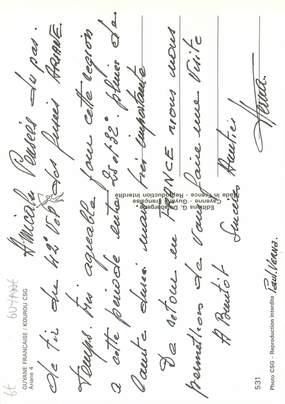 GUYANE FRANÇAISE / KOUROU CSG
Ariane 4
Amicales Pensées du pas
de tir du des fusées ARIANE.
Temps très agréable dans cette région
a cette période entre et 32° pluie de
courte durée mais très importante
De retour en FRANCE nous nous
permettrons de vous faire une visite
A Bientôt Sincères Amitiés
Editions G. Delabergerie
Cayenne - Guyane Française
Made in France - Reproduction interdite
531
Photo CSG - Reproduction interdite